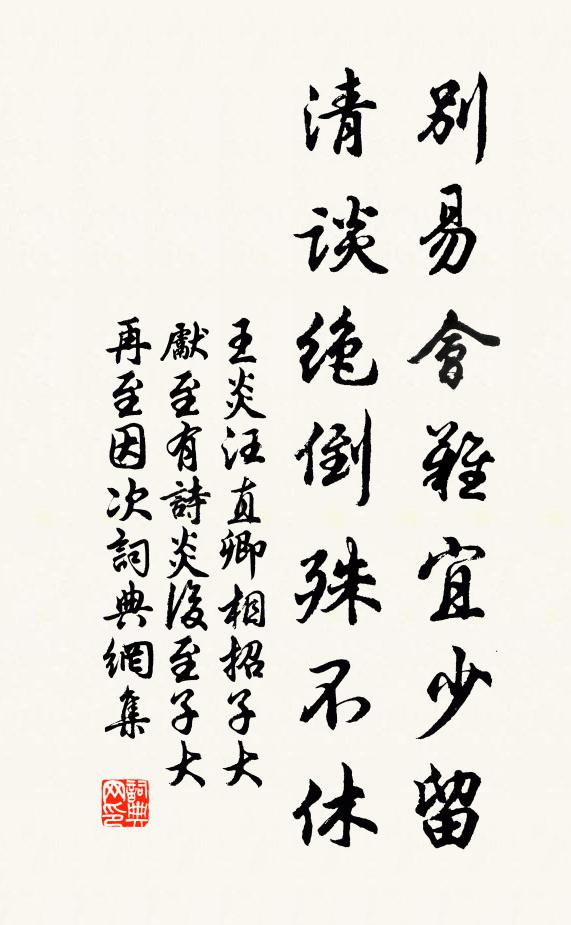 別易會難宜少留
清談絶倒殊不休
王炎汪直卿相招子大
獻至有詩炎後至子大
再至因次詞典網集
詞典網印